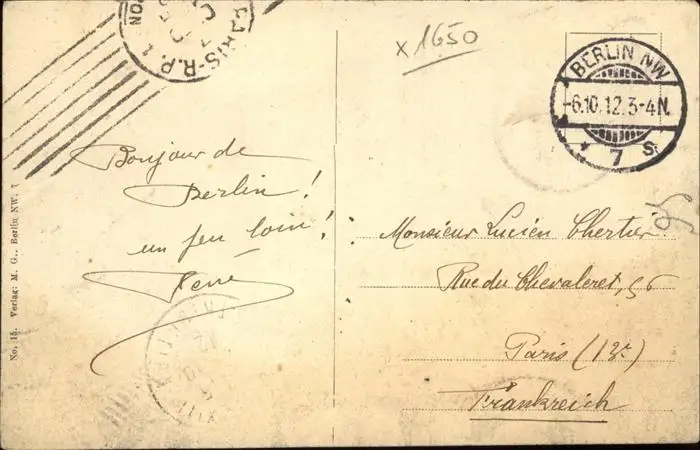 PARIS-R.P.
x 1650
BERLIN NW
-6.10.12.3-4N.
* 7 S.
Bonjour de
Berlin!
un peu loin!
René
Monsieur Lucien Chertier
Rue du Chevaleret, 56
Paris (13e)
Frankreich
No. 15. Verlag: M. G., Berlin NW. 7